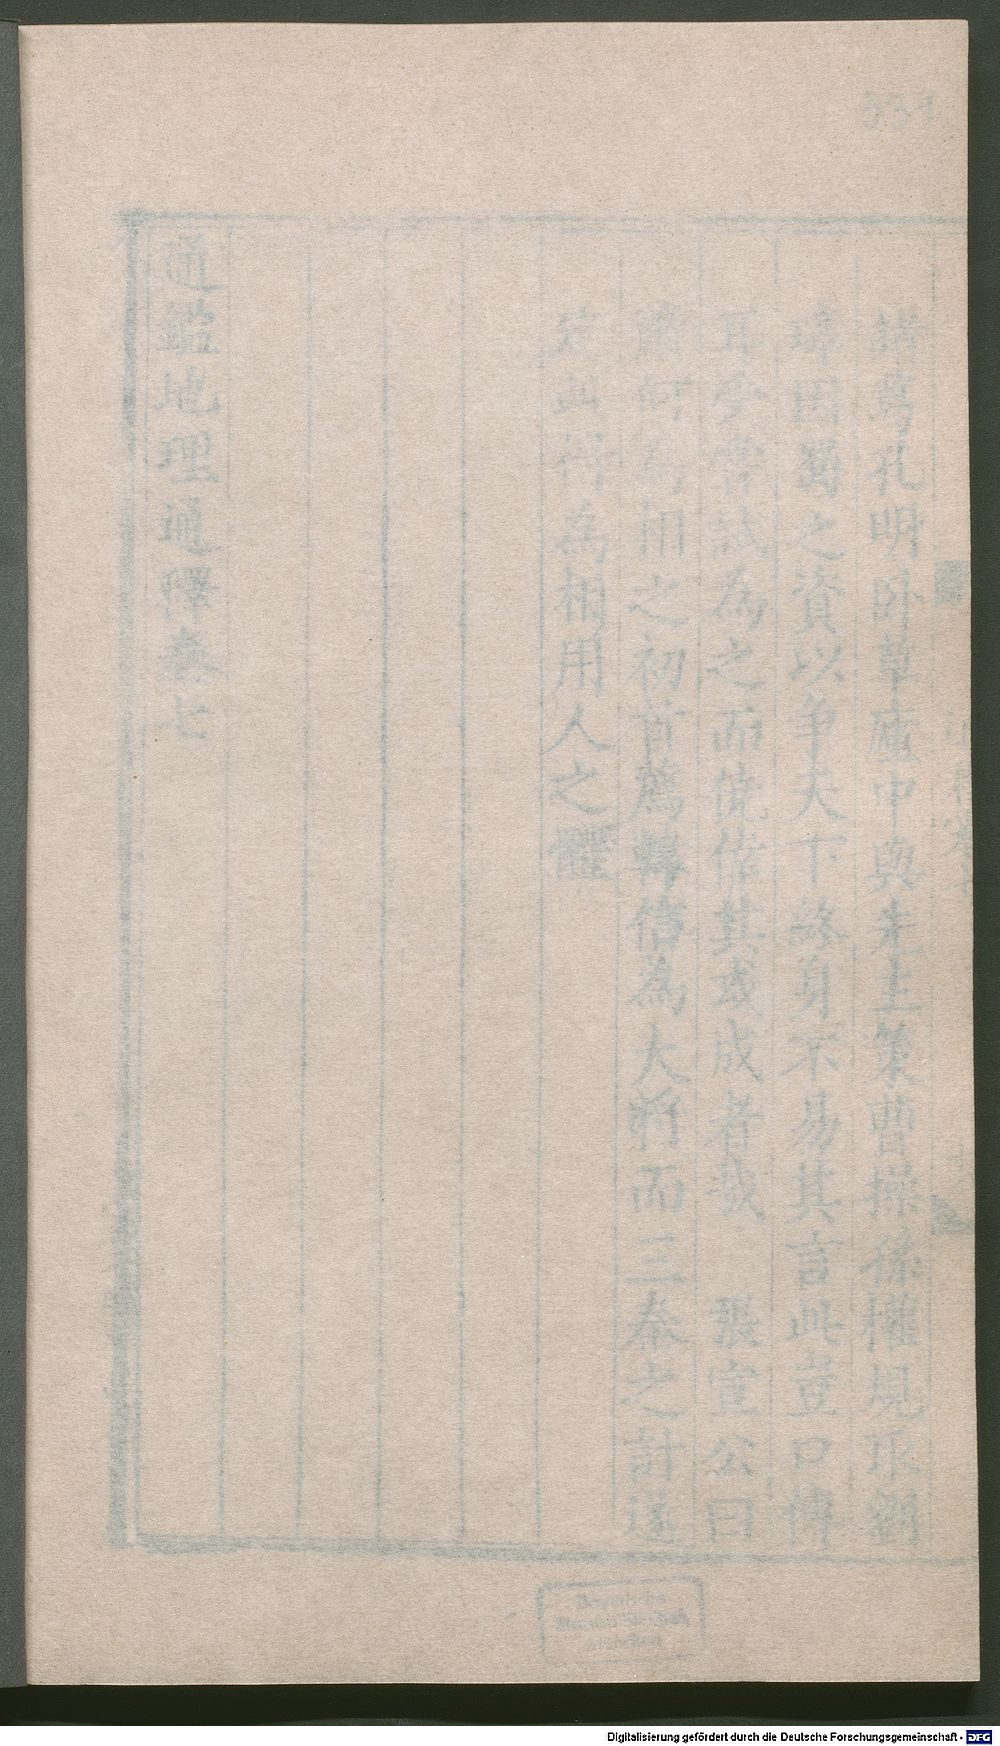 諸葛孔明卧草廬中與先主策曹操孫權規取劉
璋因蜀之資以爭天下終身不易其言此豈口傳
耳受嘗試為之而僥倖其或成者哉　張宣公曰
蕭何為相之初首薦韓信為大將而三秦之計遂
定此得為相用人之體
通鑑地理通釋卷七
Digitalisierung gefördert durch die Deutsche Forschungsgemeinschaft - DFG